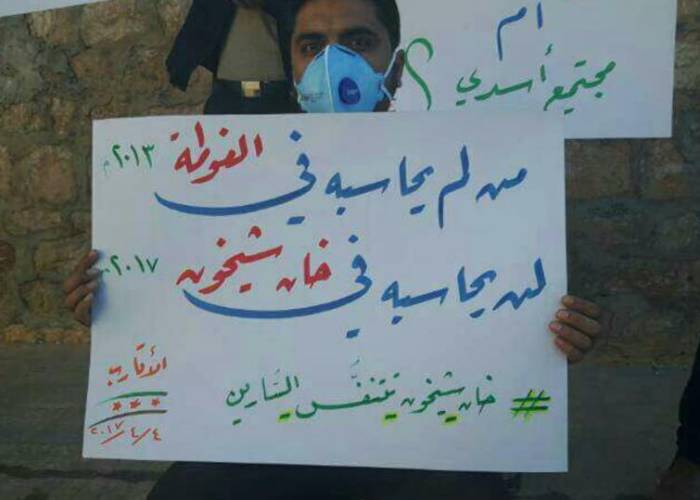 أم
مجتمع أسدي
من لم يحاسبه في الغوطة ٢٠١٣م
لن يحاسبه في خان شيخون ٢٠١٧م
# خان_شيخون_تتنفَّس_السَّارين
الأتارب
٢٠١٧/٤/٤